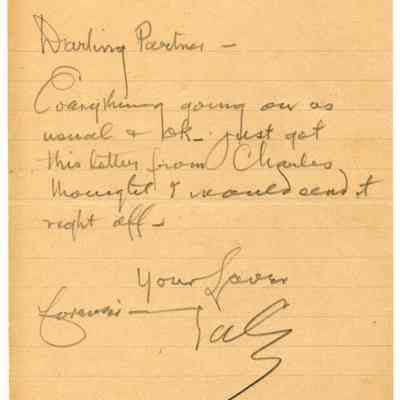 Darling Partner —
Everything going on as
usual & ok — just got
this letter from Charles
thought I would send it
right off —
Your Lover
forever —